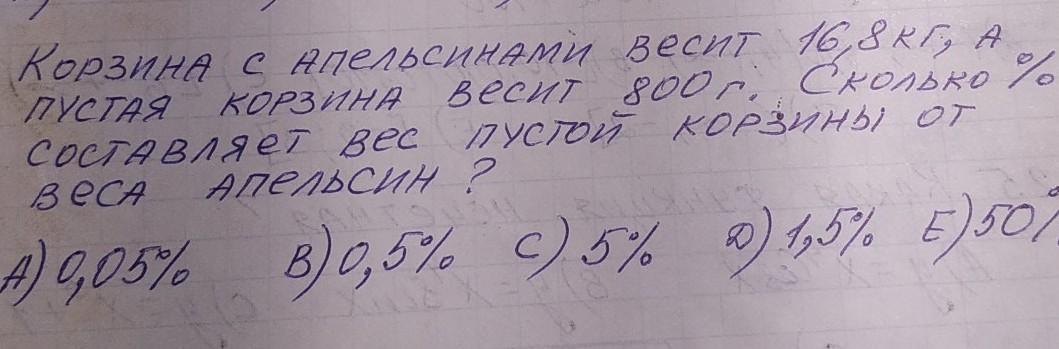 Корзина с апельсинами весит 16,8кг, а
пустая корзина весит 800г. Сколько %
составляет вес пустой корзины от
веса апельсин?
А) 0,05% В) 0,5% С) 5% D) 1,5% Е) 50%